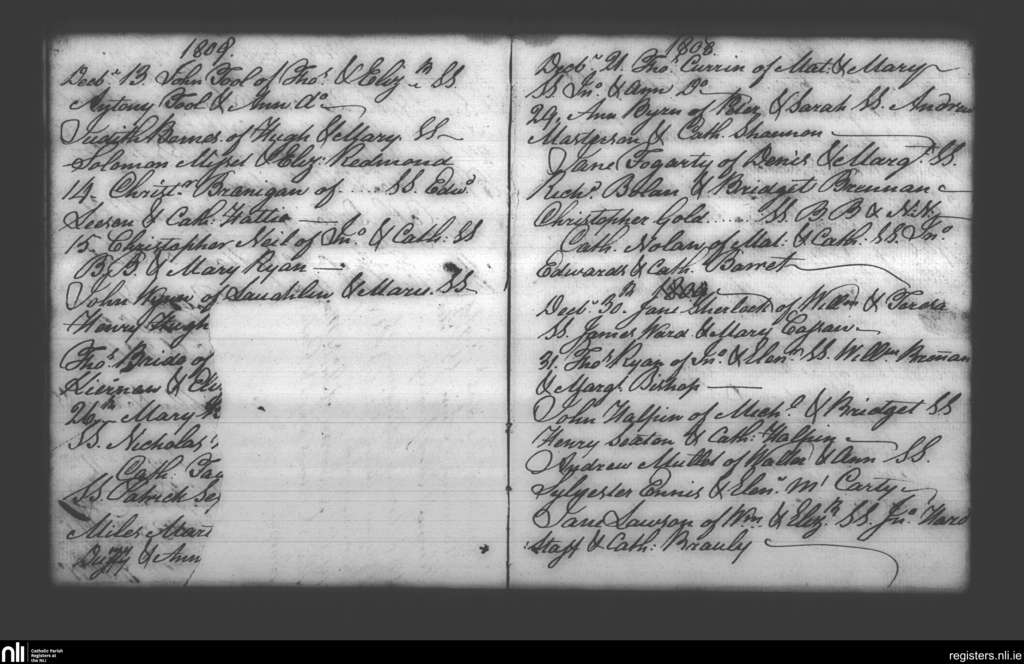 1808.
Decbr 13. John Tool of Thos. & Eliz.th SS
Antony Tool & Ann do.
Judith Barnes of Hugh & Mary. SS
Solomon & Eliz: Redmond
14. Christr. Branigan of .... SS. Edwd
Leeson & Cath: Hattie
15. Christopher Neil of Jno. & Cath: SS
B.B. & Mary Ryan
John of Laughlin & SS
Henry Hugh
Thos. Bridg of
Kiernan & Eliz
26th Mary
SS. Nicholas
Cath.
SS. Patrick
Miles
Duffy & Ann
1808.
Decbr. 21. Thos. Currin of Mat. & Mary
SS Jno. & Ann Do.
29. Ann Byrn of & Sarah SS. Andrew
Masterson & Cath. Shannon
Jane Fogarty of Denis & Margt. SS.
Richd. Bolan & Bridget Brennan
Christopher Gold ..... SS. B B & N:N.
Cath. Nolan of Mat: & Cath: SS. Jno.
Edwards & Cath: Barret
1808
Decbr. 30.th Jane Sherlock of Willm & Teresa
SS. James Ward & Mary
31. Thos. Ryan of Jno. & Elenr. SS. Willm Brennan
& Margt. Bishop
John Halpin of Michl. & Bridget SS
Henry Sexton & Cath: Halpin
Andrew of Walter & Ann SS.
Sylvester Ennis & Elenr. Mc Carty
Jane Lawson of Wm. & Eliz.th SS. Jno. Ward
Staff & Cath: Brauly
nli
Catholic Parish
Registers at
the NLI
registers.nli.ie